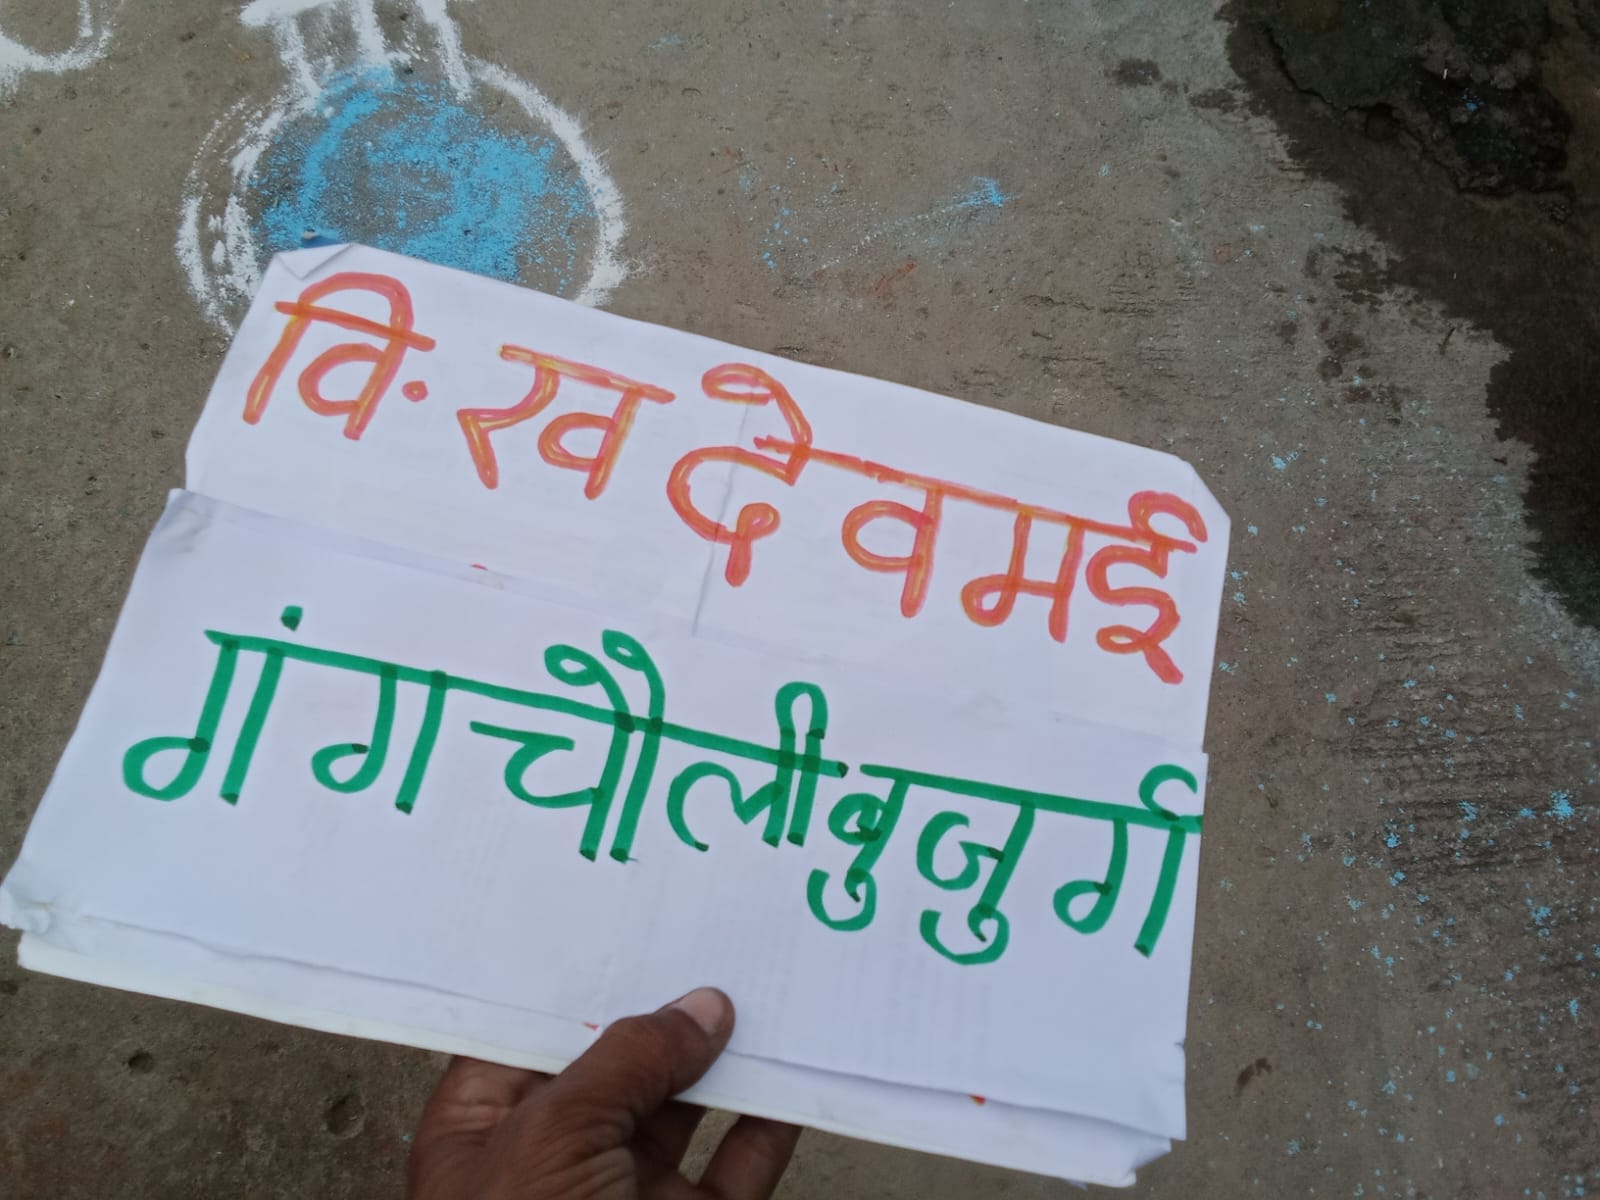 वि. ख देवमई
गंगचौली बुजुर्ग